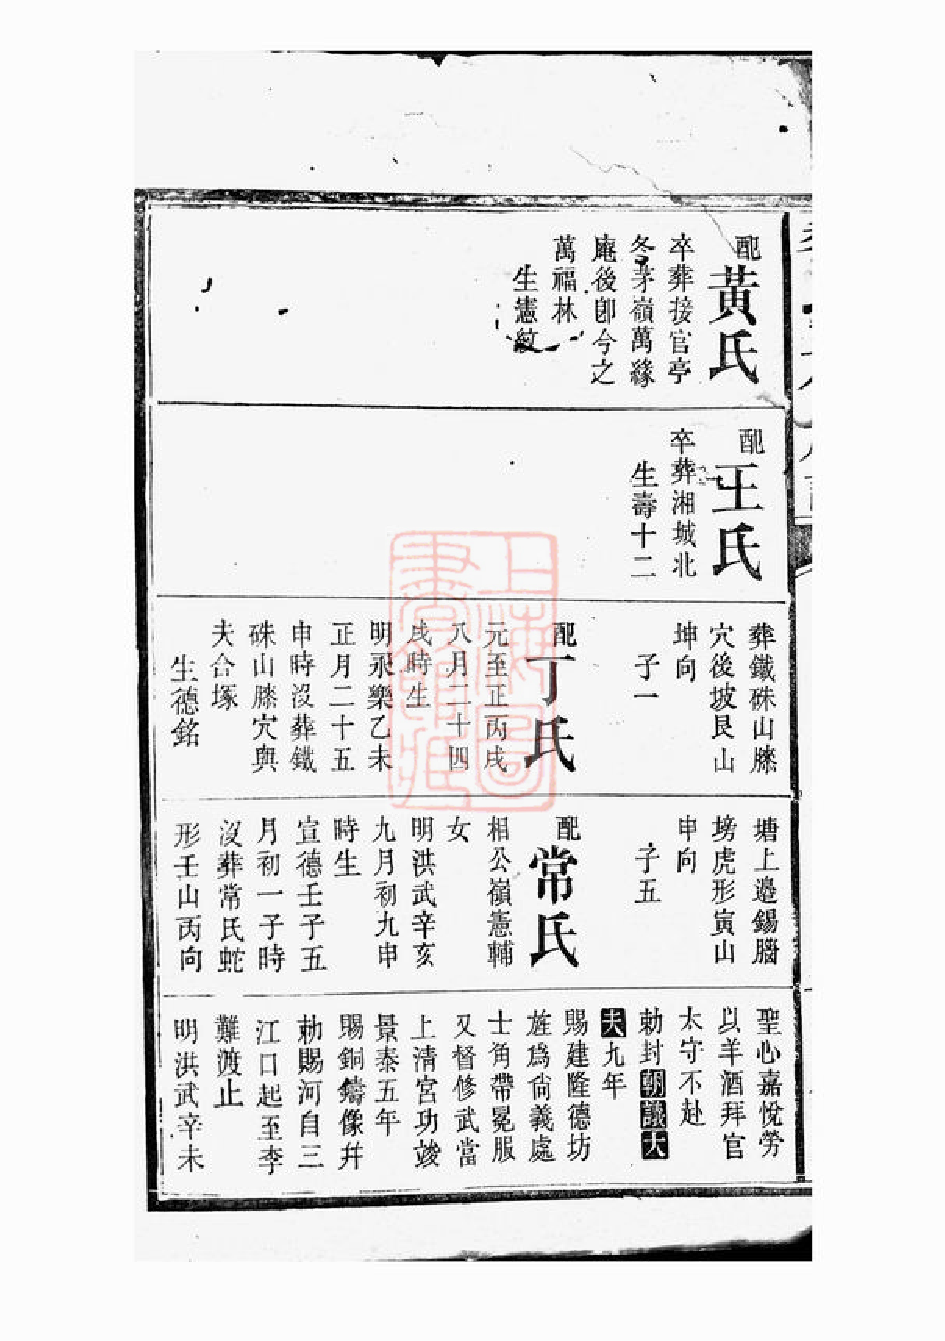 配黃氏
卒葬接官亭
冬茅嶺萬緣
庵後卽今之
萬福林
生憲紋
配王氏
卒葬湘城北
生壽十二
葬鐵硃山滕
穴後坡艮山
坤向
子一
配丁氏
元至正丙戌
八月二十四
戌時生
明永樂乙未
正月二十五
申時沒葬鐵
硃山滕穴與
夫合塚
生德銘
塘上邉錫腦
塝虎形寅山
申向
子五
配常氏
相公嶺憲輔
女
明洪武辛亥
九月初九申
時生
宣德壬子五
月初一子時
沒葬常氏蛇
形壬山丙向
聖心嘉悅勞
以羊酒拜官
太守不赴
勅封朝議大
夫九年
賜建隆德坊
旌爲尙義處
士角帶冕服
又督修武當
上清宮功竣
景泰五年
賜銅鑄像幷
勅賜河自三
江口起至李
難渡止
明洪武辛未
上海圖
書館藏